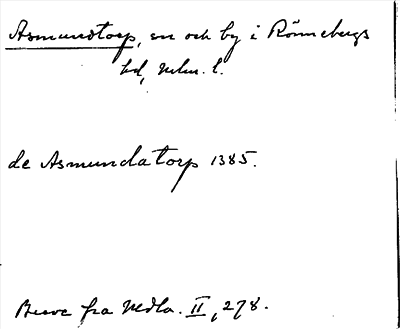 Asmundstorp, sn och by i Rönnebergs
hd, Mlm. l.
de Asmundatorp 1385.
Breve fra Mdla. II, 278.